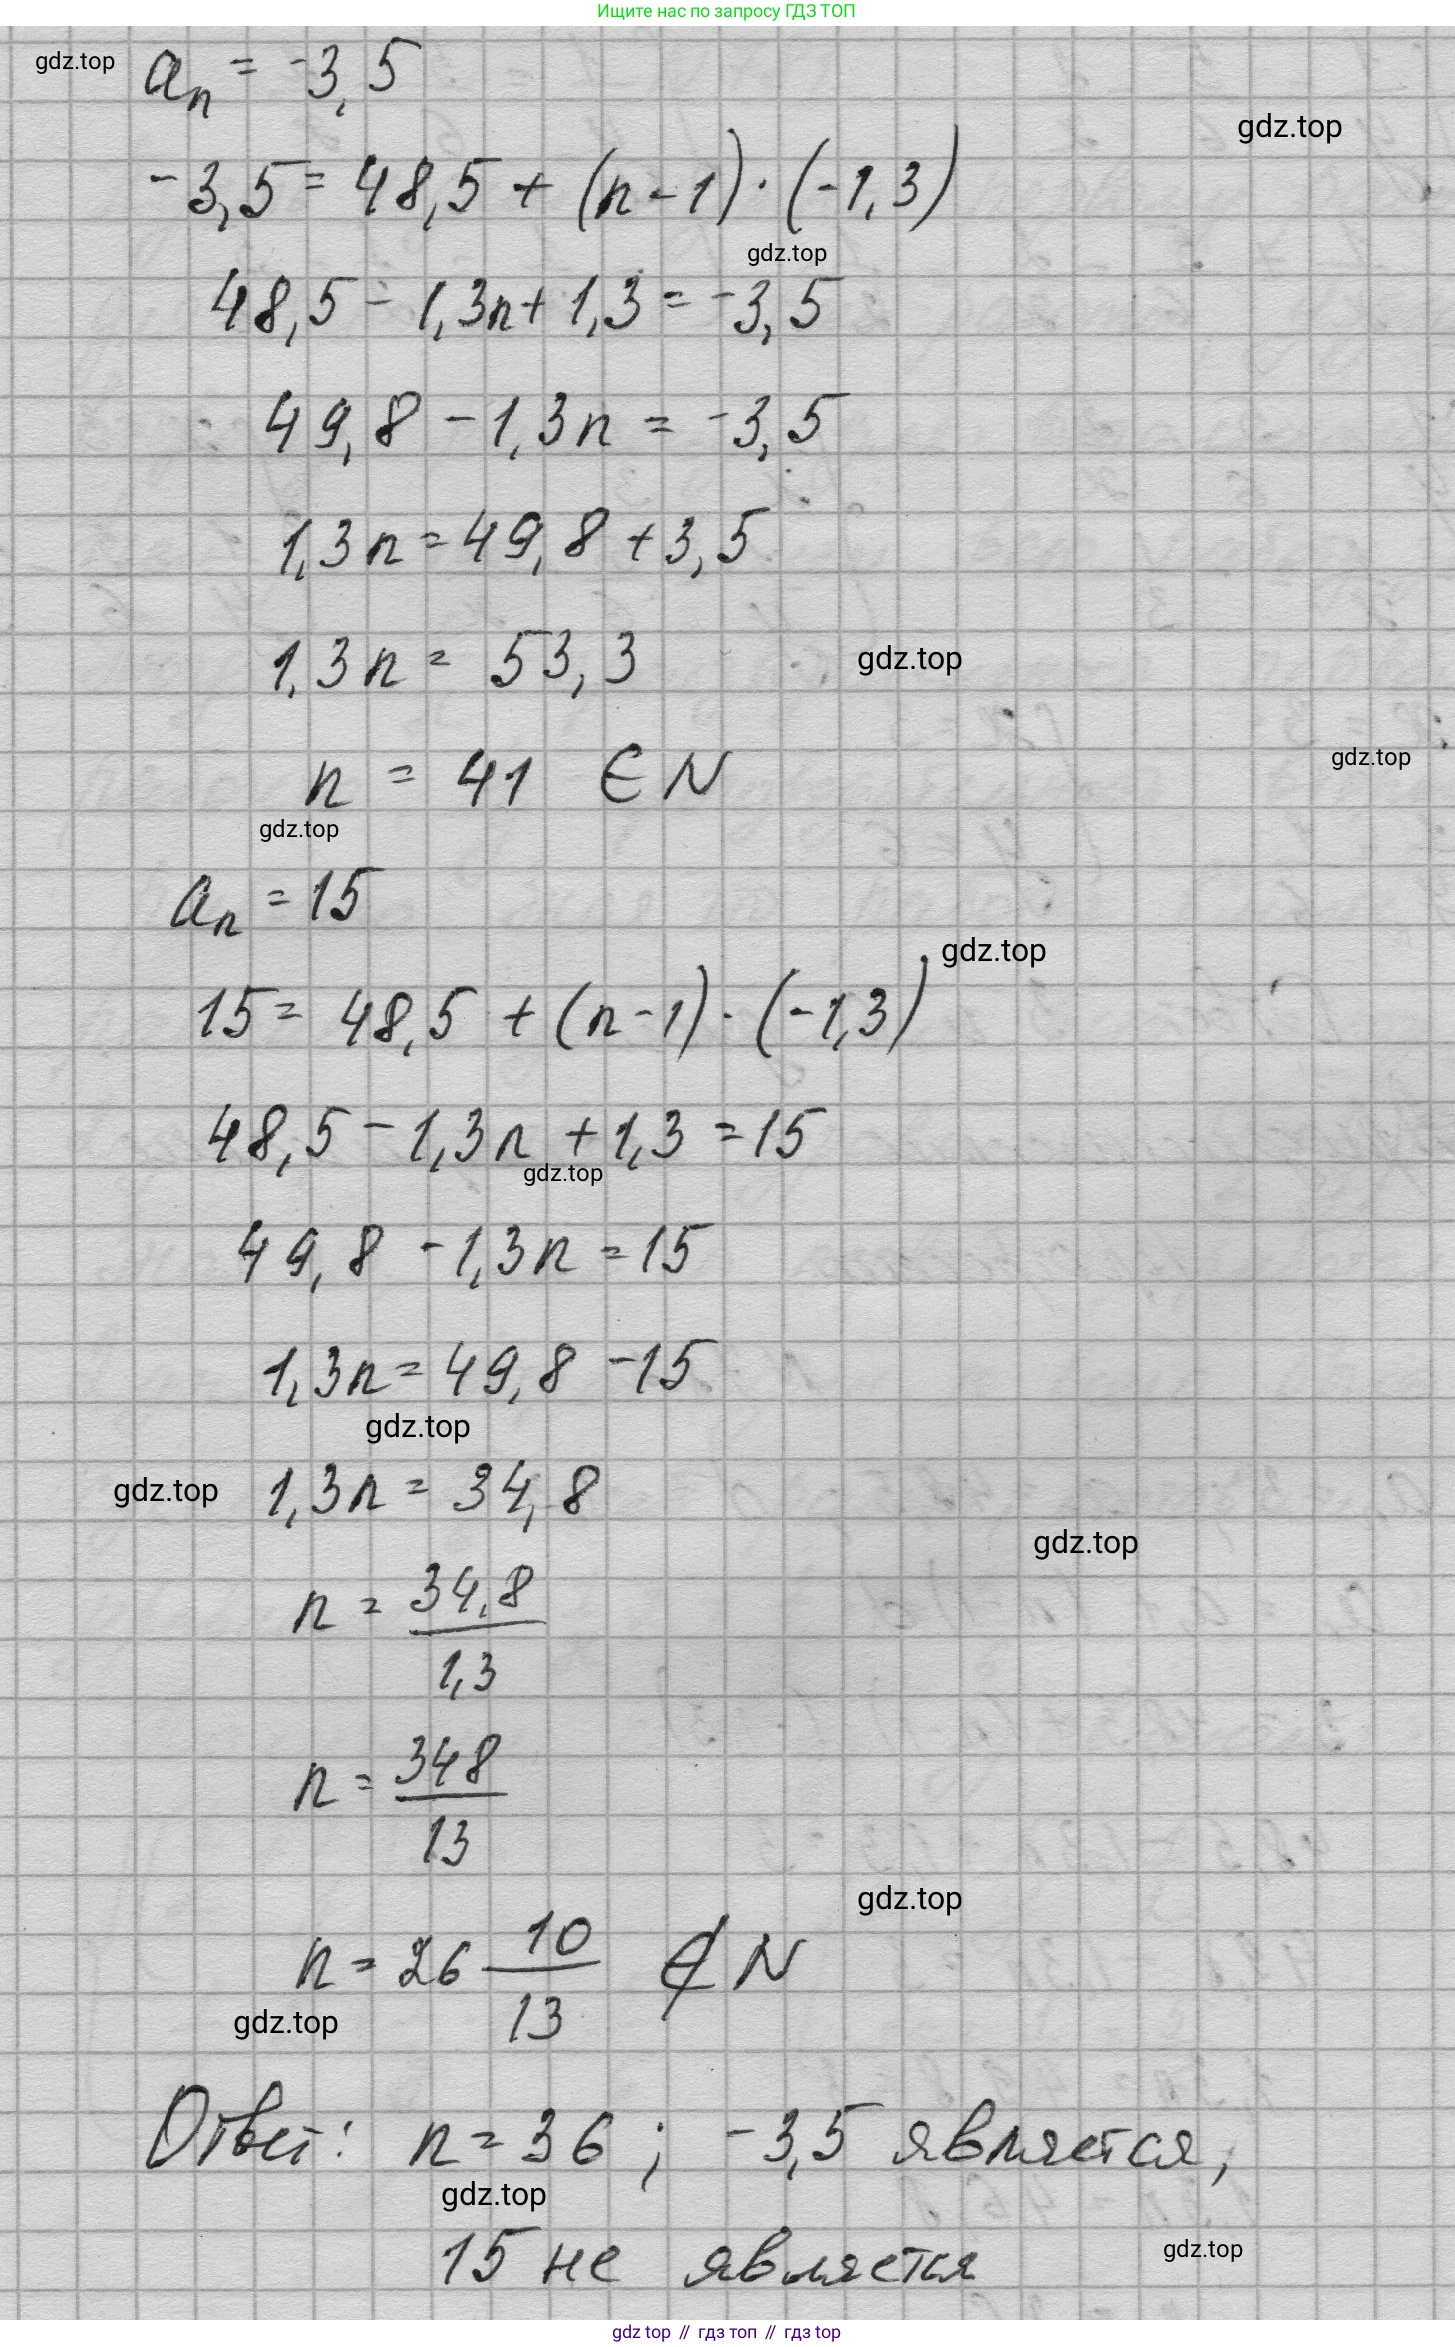 Ищите нас по запросу ГДЗ ТОП
gdz.top
aₙ = -3,5
gdz.top
-3,5 = 48,5 + (n - 1) · (-1,3)
gdz.top
48,5 - 1,3n + 1,3 = -3,5
49,8 - 1,3n = -3,5
1,3n = 49,8 + 3,5
1,3n = 53,3
gdz.top
n = 41 ∈ N
gdz.top
gdz.top
aₙ = 15
gdz.top
15 = 48,5 + (n - 1) · (-1,3)
48,5 - 1,3n + 1,3 = 15
gdz.top
49,8 - 1,3n = 15
1,3n = 49,8 - 15
gdz.top
gdz.top
1,3n = 34,8
gdz.top
n = 34,8 / 1,3
n = 348 / 13
gdz.top
n = 26 10/13 ∉ N
gdz.top
Ответ: n = 36 ; -3,5 является,
gdz.top
15 не является
gdz.top
gdz top // гдз топ // гдз top